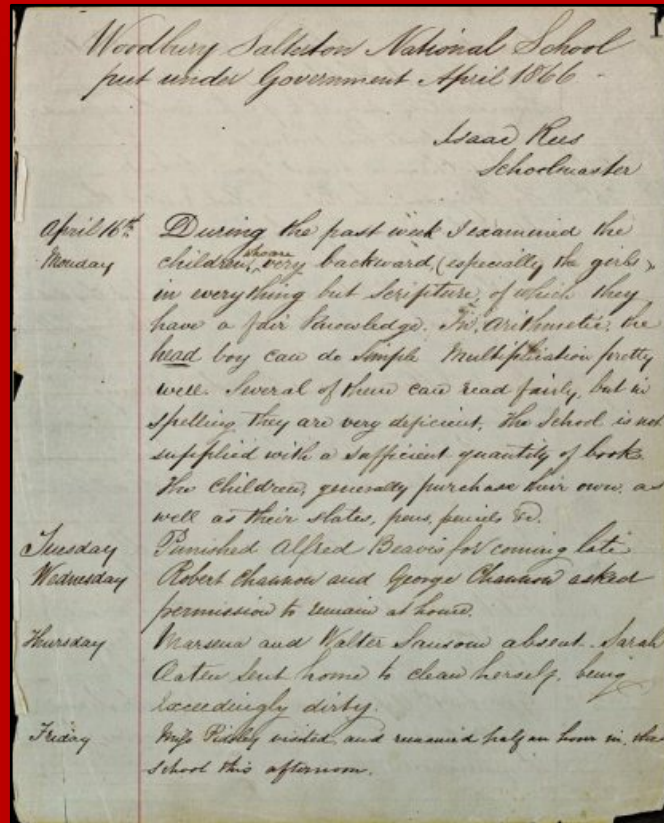 1
Woodbury Salterton National School
put under Government April 1866 -
Isaac Rees
Schoolmaster
April 16th During the past week I examined the
Monday children, who are very backward, (especially the girls),
in everything but Scripture, of which they
have a fair knowledge. In, arithmetic, the
head boy can do Simple Multiplication pretty
well. Several of them can read fairly, but in
spelling, they are very deficient. The School is not
supplied with a sufficient quantity of books.
The Children, generally purchase their own, as
well as their slates, pens, pencils &c.
Tuesday Punished Alfred Beavis for coming late
Wednesday Robert Channon and George Channon asked
permission to remain at home.
Thursday Marsena and Walter Sansom absent. Sarah
Oaten sent home to clean herself, being
exceedingly dirty.
Friday Miss visited and remained half an hour in, the
school this afternoon.